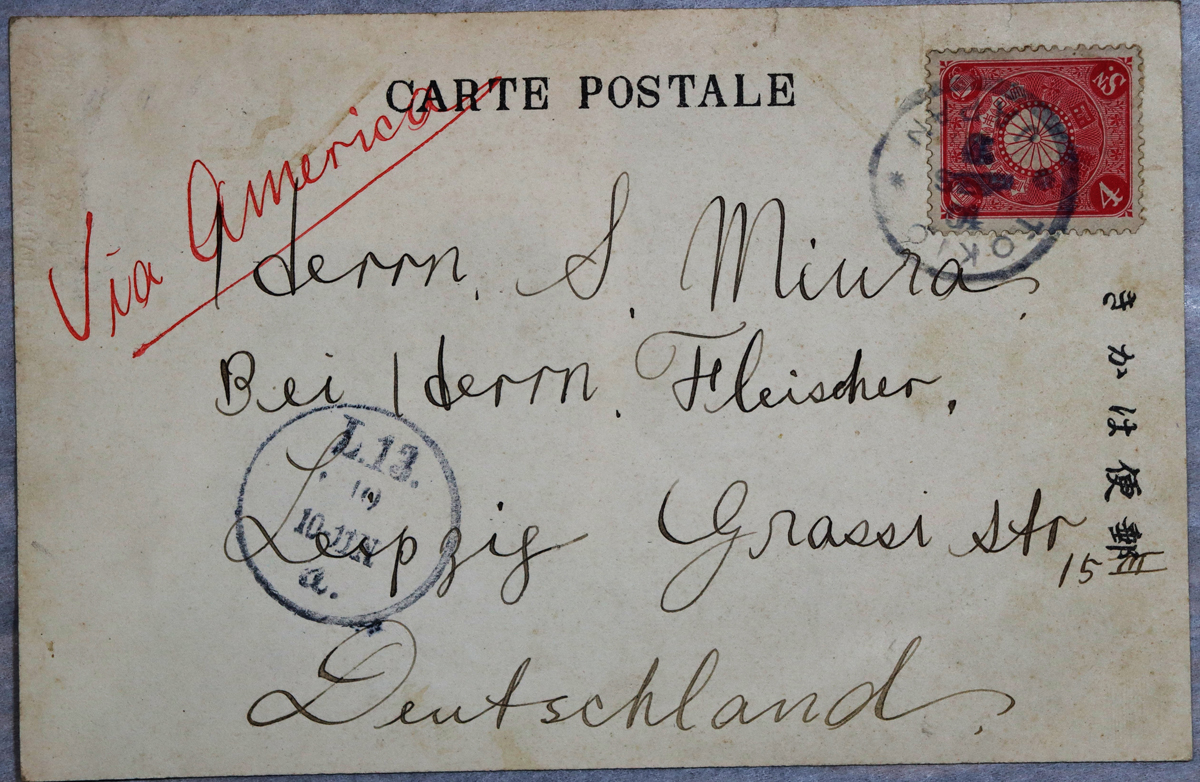 CARTE POSTALE
Via America
Herrn. S. Miura.
Bei Herrn. Fleischer.
Leipzig Grassi str
15 III
Deutschland.
きかは便郵
L.13.
10
10 JUN
a.
TOKIO
JAPAN
4
SN.